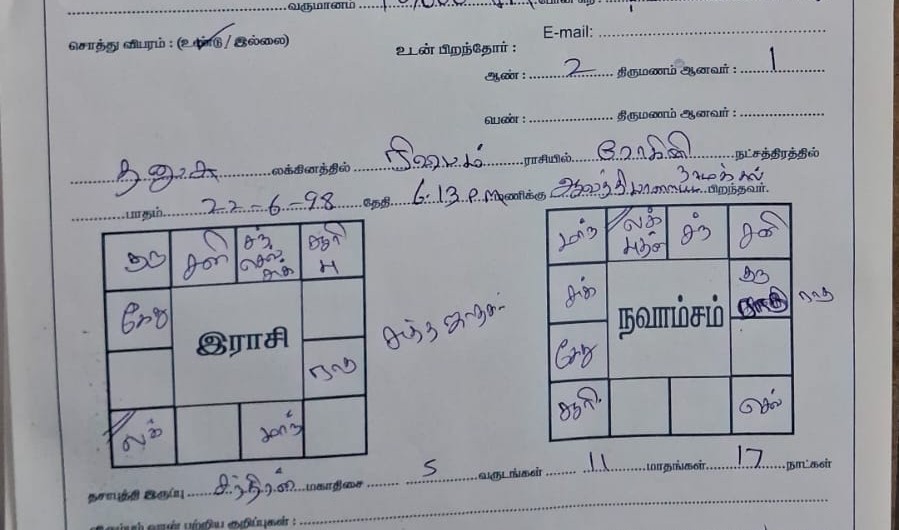 வருமானம்
சொத்து விபரம் : (உண்டு / இல்லை)
E-mail:
உடன் பிறந்தோர் :
ஆண் : 2 திருமணம் ஆனவர் : 1
பெண் : திருமணம் ஆனவர் :
தனுசு லக்கினத்தில் ரிஷபம் ராசியில் ரோகினி நட்சத்திரத்தில்
பாதம் 22-6-98 தேதி 6.13 P.M மணிக்கு நாமக்கல் பிறந்தவர்.
குரு சனி சந் செவ் சுக் சூரி பு
கேது ராகு
லக் மாந்
இராசி
சுத்த ஜாதகம்
மாந் லக் புதன் சந் சனி
சுக் குரு ராகு
கேது
சூரி செவ்
நவாம்சம்
தசாபுத்தி இருப்பு சந்திரன் மகாதிசை 5 வருடங்கள் 11 மாதங்கள் 17 நாட்கள்